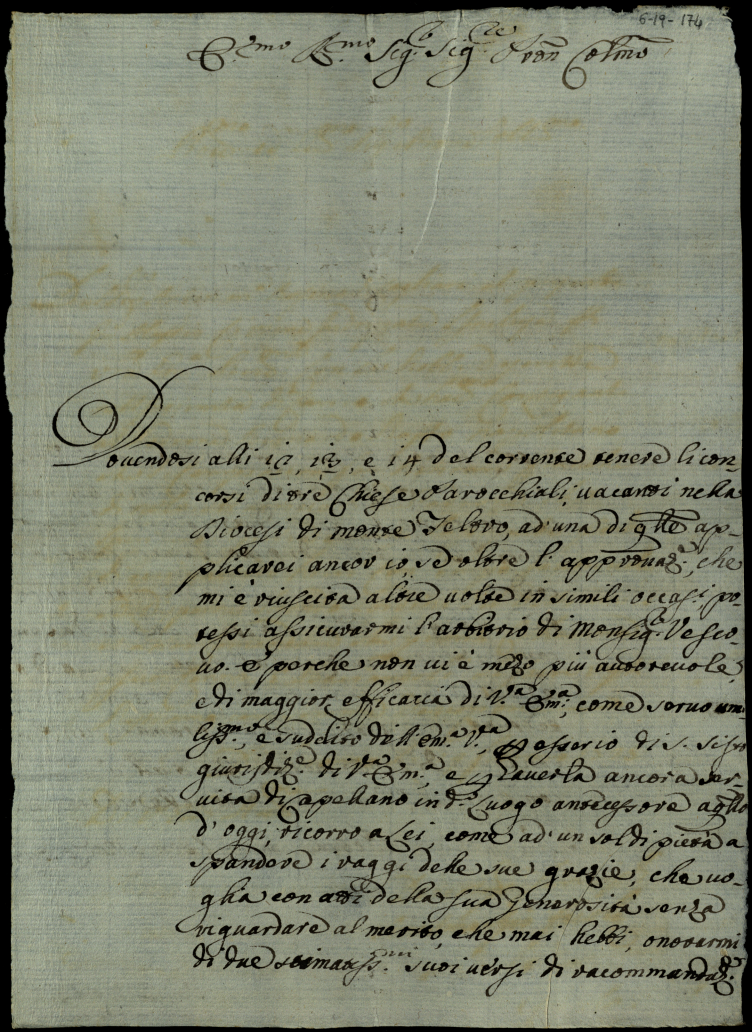 6-19-174
E.mo R.mo Sig.r Sig.r Pron Colmo
Douendosi alli 12, 13, e 14 del corrente tenere li con-
corsi di tre Chiese Parocchiali, uacanti nella
Diocesi di monte Feltro, ad'una di qlle ap-
plicarei ancor io, se oltre l'approuaz.e, che
mi è riuscita altre uolte in simili occas.i po-
tessi assicurarmi l'arbitrio di Monsig.r Vesco-
uo. E' perche non ui è mezo più autoreuole,
e di maggior efficacia di V.a Em.a, come seruo umi-
liss.mo, e suddito dell'Em.a V.a, p esser io di S. Sisto
giurisdiz.e di V.a Em.a e p hauerla ancora ser-
uita di Capellano in d.o Luogo antecessore a qllo
d'oggi, ricorro a Lei, come ad'un sol di pietà a
spandere i raggi delle sue grazie, che uo-
glia con atti della sua Generosità senza
riguardare al merito, che mai hebbi, onorarmi
di due stimatiss.mi suoi uersi di racommandaz.e